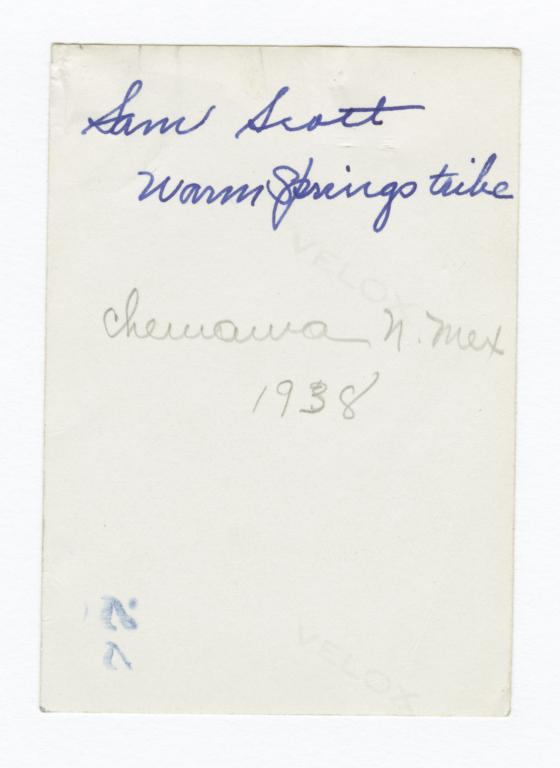 Sam Scott
Warm Springs tribe
VELOX
Chemawa N. Mex
1938
VELOX